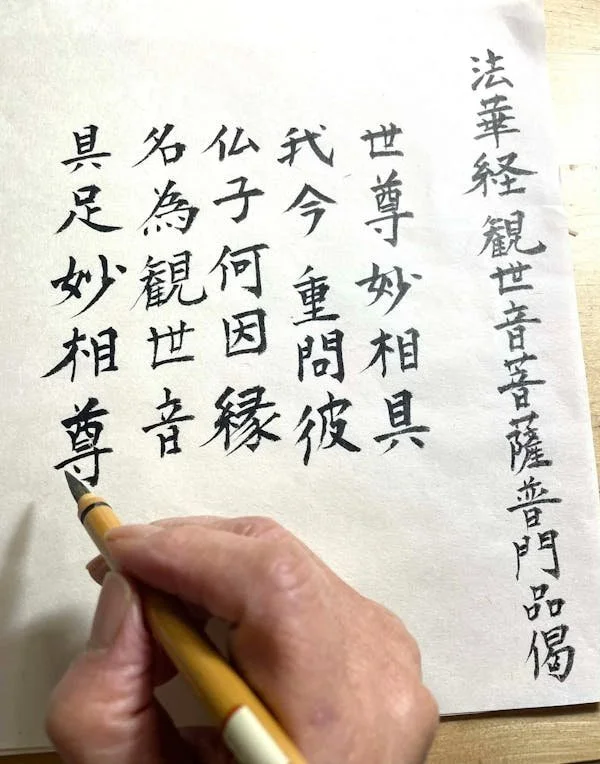 法華経観世音菩薩普門品偈
世尊妙相具
我今重問彼
仏子何因縁
名為観世音
具足妙相尊